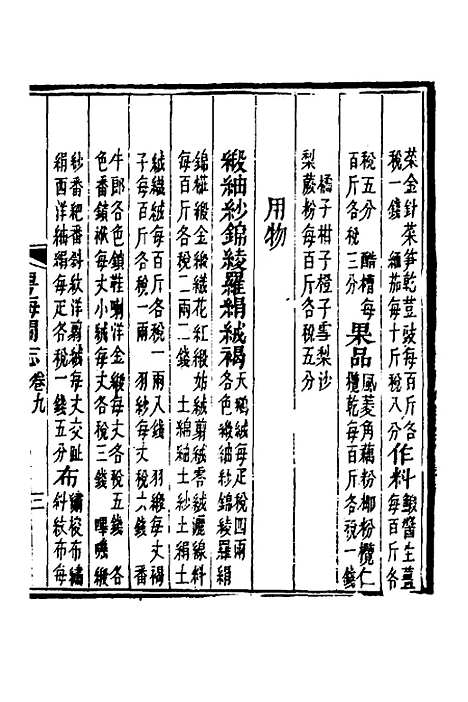 菜金針菜笋乾荳豉每百斤各
稅一錢 緬茄每十斤稅八分
作料
鰕醬生薑
每百斤各
稅五分 醋糟每
百斤各稅三分
果品
風菱角藕粉椰粉欖仁
欖乾每百斤各稅一錢
橘子柑子橙子雪梨沙
梨蕨粉每百斤各稅五分
用物
緞紬紗錦綾羅絹絨褐
天鵝絨每疋稅四兩
各色緞紬紗錦綾羅絹
錦椗緞金緞織花紅緞姑絨剪絨零絨灑線料
每百斤各稅二兩二錢 土綿紬土紗土絹土
絨織絨每百斤各稅一兩八錢 羽緞每丈褐
子每百斤各稅一兩 羽紗每丈稅六錢 番
牛郎各色鎖鞋喇洋金緞每丈各稅五錢 各
色番鎖袱每丈小絨每丈各稅三錢 嗶嘰緞
紗番粑番斜紋洋剪絨每丈交趾
絹西洋紬絹每疋各稅一錢五分
布
繡梭布每繡
斜紋布每
粤海關志
卷九
三